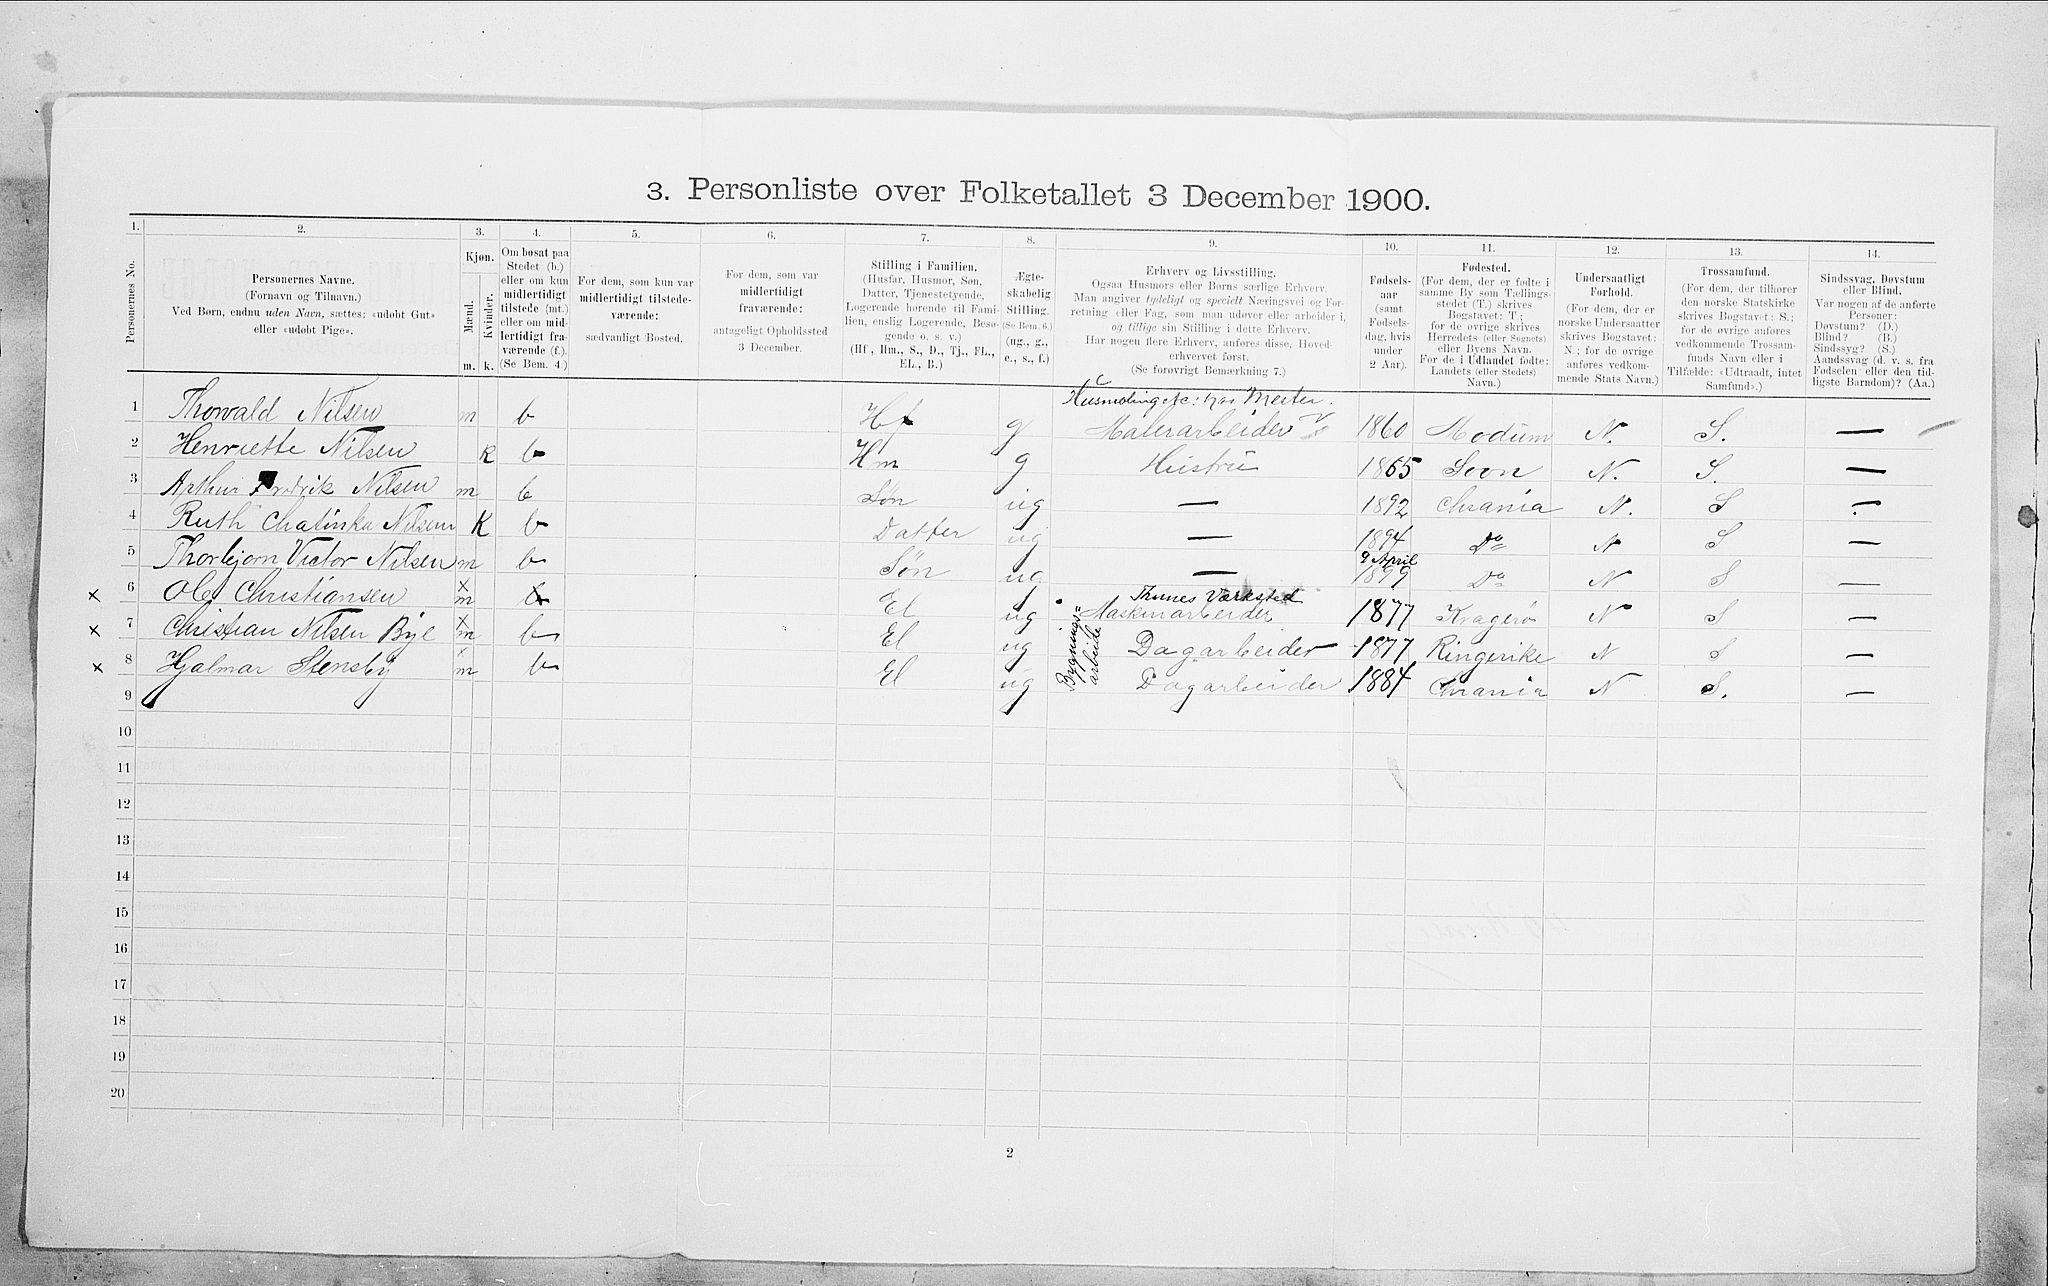 3. Personliste over Folketallet 3 December 1900.
1. 2. 3. 4. 5. 6. 7. 8. 9. 10. 11. 12. 13. 14.
Personernes No.
Personernes Navne.
(Fornavn og Tilnavn.)
Ved Børn, endnu uden Navn, sættes: «udobt Gut»
eller «udobt Pige».
Kjøn.
Mænd. Kvinder.
m. k.
Om bosat paa
Stedet (b.)
eller om kun
midlertidigt
tilstede (mt.)
eller om mid-
lertidigt fra-
værende (f.).
(Se Bem. 4.)
For dem, som kun var
midlertidigt tilstede-
værende:
sædvanligt Bosted.
For dem, som var
midlertidigt
fraværende:
antageligt Opholdssted
3 December.
Stilling i Familien.
(Husfar, Husmor, Søn,
Datter, Tjenestetyende,
Logerende hørende til Fami-
lien, enslig Logerende, Besø-
gende o. s. v.)
(Hf, Hm., S., D., Tj., FL.,
EL., B.)
Ægte-
skabelig
Stilling.
(Se Bem. 6.)
(ug., g.,
e., s., f.)
Erhverv og Livsstilling.
Ogsaa Husmors eller Børns særlige Erhverv.
Man angiver tydeligt og specielt Næringsvei og For-
retning eller Fag, som man udøver eller arbeider i,
og tillige sin Stilling i dette Erhverv.
Har nogen flere Erhverv, anføres disse, Hoved-
erhvervet først.
(Se forøvrigt Bemærkning 7.)
Fødsels-
aar
(samt
Fødsels-
dag, hvis
under
2 Aar).
Fødested.
(For dem, der er fødte i
samme By som Tællings-
stedet (T.) skrives
Bogstavet: T.;
for de øvrige skrives
Herredets (eller Sognets)
eller Byens Navn.
For de i Udlandet fødte:
Landets (eller Stedets)
Navn.)
Undersaatligt
Forhold.
(For dem, der er
norske Undersaatter
skrives Bogstavet:
N.; for de øvrige
anføres vedkom-
mende Stats Navn.)
Trossamfund.
(For dem, der tilhører
den norske Statskirke
skrives Bogstavet: S.;
for de øvrige anføres
vedkommende Trossam-
funds Navn eller i
Tilfælde: «Udtraadt, intet
Samfund».)
Sindssvag, Døvstum
eller Blind.
Var nogen af de anførte
Personer:
Døvstum? (D.)
Blind? (B.)
Sindssyg? (S.)
Aandssvag (d. v. s. fra
Fødselen eller den tid-
ligste Barndom)? (Aa.)
hos Mester.
1 Thorvald Nilsen m b Hf g Malerarbeider 1860 Modum N. S. —
2 Henriette Nilsen K b Hm g Hustru 1865 N. S. —
3 Arthur Fredrik Nilsen m b Søn ug — 1892 Chrania N. S —
4 Ruth Chatinka Nilsen K b Datter ug — 1894 Do N S —
9 April
5 Thorbjorn Victor Nilsen m b Søn ug — 1899 Do N S —
Thunes Værksted
x 6 Ole Christiansen x m b El ug Maskinarbeider 1877 Kragerø N S —
Bygnings=
arbeide
x 7 Christian Nilsen Bye x m b El ug Dagarbeider 1877 Ringerike N S —
x 8 Hjalmar Stensby x m b El ug Dagarbeider 1884 Chrania N S. —
9
10
11
12
13
14
15
16
17
18
19
20
2